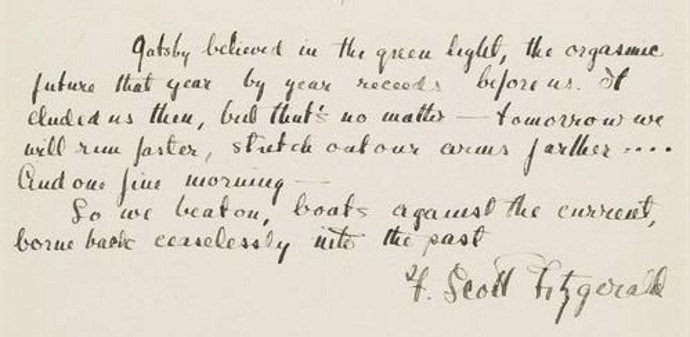 Gatsby believed in the green light, the orgasmic
future that year by year receeds before us. It
eluded us then, but that's no matter — tomorrow we
will run faster, stretch out our arms farther ....
And one fine morning —
So we beat on, boats against the current,
borne back ceaselessly into the past
F. Scott Fitzgerald